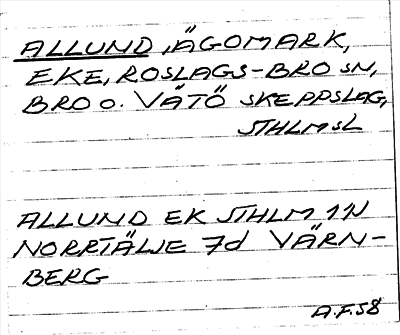 ALLUND, ÄGOMARK,
EKE, ROSLAGS-BRO SN,
BRO O. VÄTÖ SKEPPSLAG,
STHLMSL
ALLUND EK STHLM 1N
NORRTÄLJE 7d VÄRN-
BERG
A.F.58